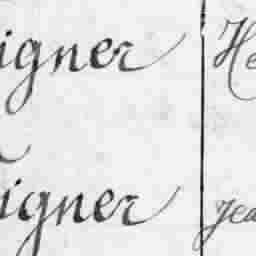 igner He
igner Jea